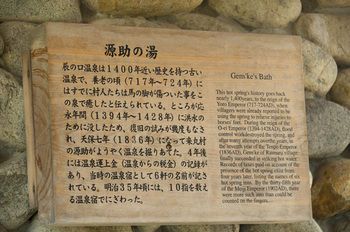 源助の湯
辰の口温泉は1400年近い歴史を持つ古い
温泉で、養老の頃(717年〜724年)に
はすでに村人たちは馬の脚が傷ついた事をこ
の泉で癒したと伝えられている。ところが応
永年間(1394〜1428年)に洪水の
ために没したため、復旧の試みが幾度もなさ
れ、天保七年(1836年)になって来丸村
の源助がようやく温泉を掘りあてた。4年後
には温泉運上金(温泉からの税金)の記録が
あり、当時の温泉宿として6軒の名前が記さ
れている。明治35年頃には、10指を数え
る温泉宿でにぎわった。
Gemske's Bath
This hot spring's history goes back
nearly 1,400years; in the reign of the
Yoro Emperor (717-724AD), when
villagers were already reported to be
using the spring to relieve injuries to
horses' feet. During the reign of the
O-ei Emperor (1394-1428AD), flood
control works destroyed the spring, and
after many attempts over the years, in
the seventh year of the Tenpo Emperor
(1836AD), Gemske of Kuimaru village
finally succeeded in striking hot water.
Records of taxes paid on account of the
presence of the hot spring exist from
four years later, listing the names of six
hot spring inns. By the thirty-fifth year
of the Meiji Emperor (1902AD), there
were more such inns than could be
counted on the fingers.